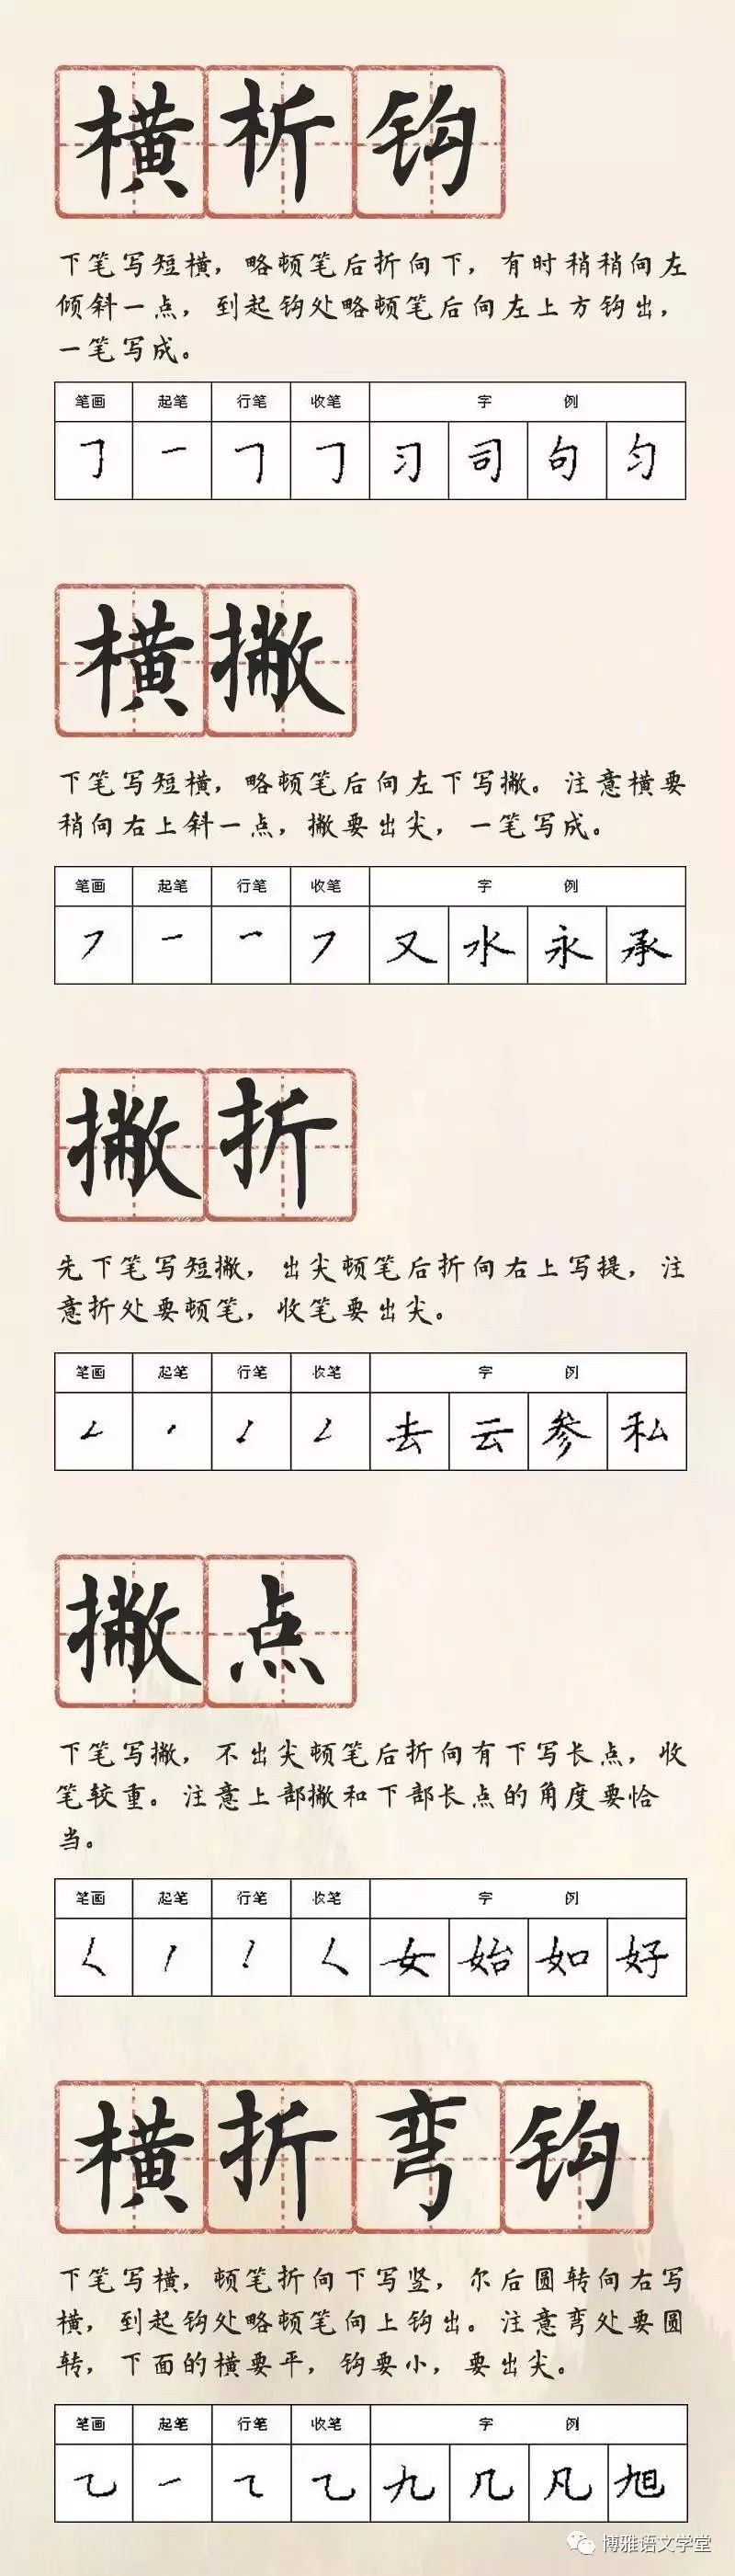 横析钩
下笔写短横，略顿笔后折向下，有时稍稍向左
倾斜一点，到起钩处略顿笔后向左上方钩出，
一笔写成。
笔画 起笔 行笔 收笔 字例
𠃌 一 𠃌 𠃌 习 司 句 匀
横撇
下笔写短横，略顿笔后向左下写撇。注意横要
稍向右上斜一点，撇要出尖，一笔写成。
笔画 起笔 行笔 收笔 字例
㇇ 一 ㇖ ㇇ 又 水 永 承
撇折
先下笔写短撇，出尖顿笔后折向右上写提，注
意折处要顿笔，收笔要出尖。
笔画 起笔 行笔 收笔 字例
𠃋 去 云 参 私
撇点
下笔写撇，不出尖顿笔后折向有下写长点，收
笔较重。注意上部撇和下部长点的角度要恰
当。
笔画 起笔 行笔 收笔 字例
㇛ 女 始 如 好
横折弯钩
下笔写横，顿笔折向下写竖，尔后圆转向右写
横，到起钩处略顿笔向上钩出。注意弯处要圆
转，下面的横要平，钩要小，要出尖。
笔画 起笔 行笔 收笔 字例
㇈ 一 ㇈ ㇈ 九 几 凡 旭
博雅语文学堂